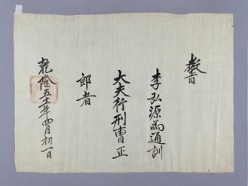 敎旨
李弘源爲通訓
大夫行刑曹正
郎者
乾隆五十一年四月初一日